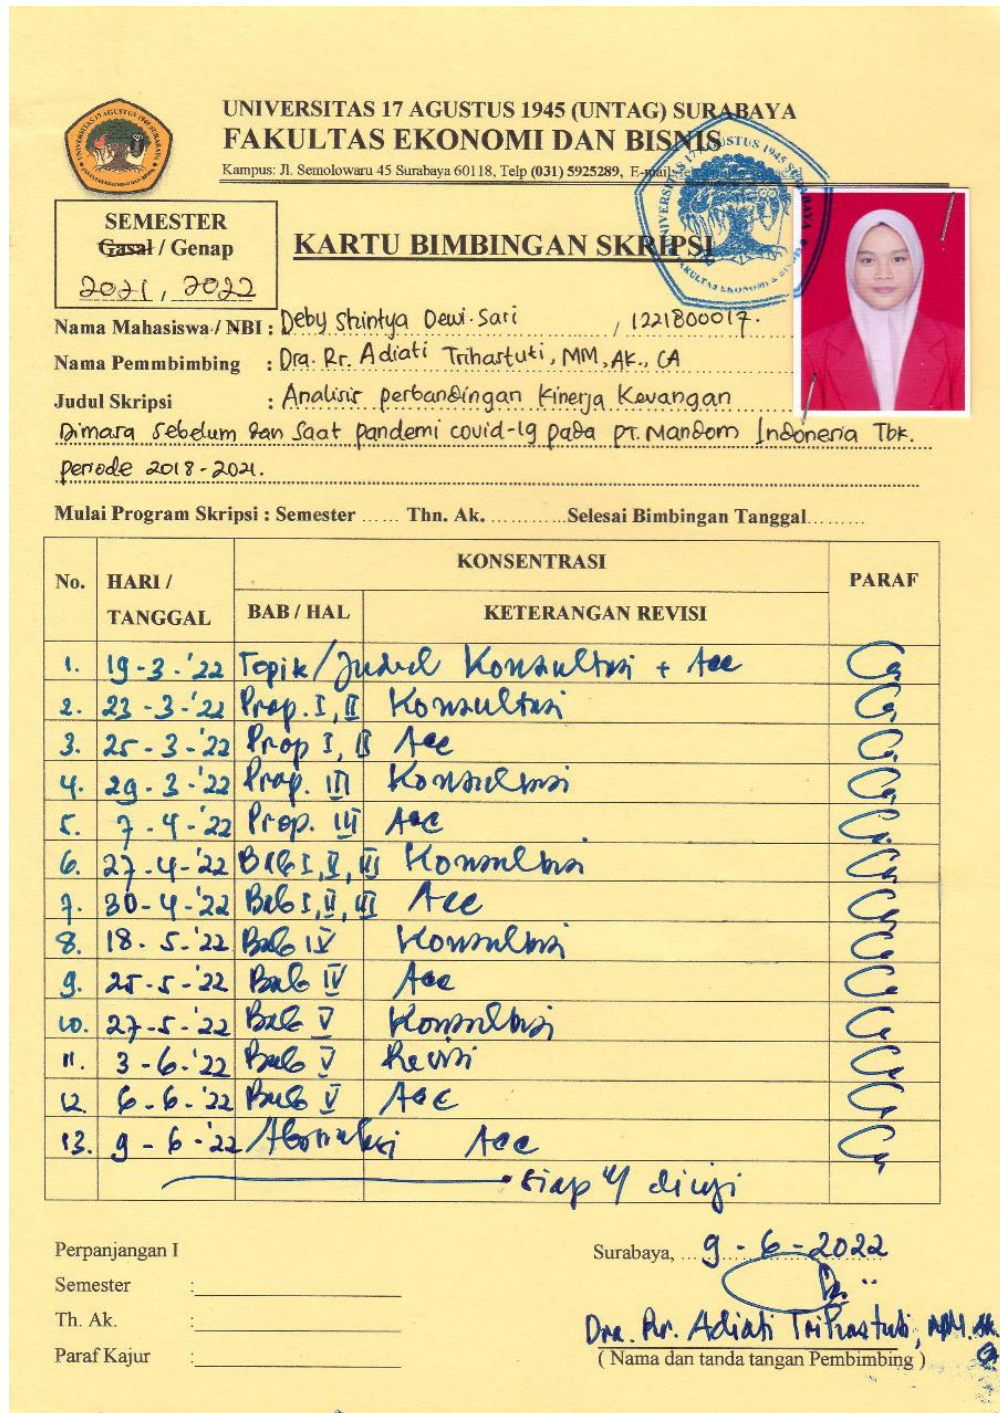 UNIVERSITAS 17 AGUSTUS 1945 (UNTAG) SURABAYA
FAKULTAS EKONOMI DAN BISNIS
Kampus: Jl. Semolowaru 45 Surabaya 60118, Telp (031) 5925289, E-mail
SEMESTER
Gasal / Genap
2021, 2022
KARTU BIMBINGAN SKRIPSI
Nama Mahasiswa / NBI : Deby Shintya Dewi Sari , 1221800017.
Nama Pemmbimbing : Dra. Rr. Adiati Trihastuti, MM, AK., CA
Judul Skripsi : Analisis perbandingan Kinerja Keuangan
Dimasa Sebelum dan Saat pandemi covid-19 pada PT. Mandom Indonesia Tbk.
periode 2018-2021.
Mulai Program Skripsi : Semester ...... Thn. Ak. ............Selesai Bimbingan Tanggal.........
No. HARI / TANGGAL KONSENTRASI PARAF
BAB / HAL KETERANGAN REVISI
1. 19-3-'22 Topik/Judul Konsultasi + Acc
2. 23-3-'22 Prop. I, II Konsultasi
3. 25-3-'22 Prop I, II Acc
4. 29-3-'22 Prop. III Konsultasi
5. 7-4-'22 Prop. III Acc
6. 27-4-'22 Bab I, II, III Konsultasi
7. 30-4-'22 Bab I, II, III Acc
8. 18-5-'22 Bab IV Konsultasi
9. 25-5-'22 Bab IV Acc
10. 27-5-'22 Bab V Konsultasi
11. 3-6-'22 Bab V Revisi
12. 6-6-'22 Bab V Acc
13. 9-6-'22 Abstraksi Acc
siap u/ diuji
Perpanjangan I
Semester :
Th. Ak. :
Paraf Kajur :
Surabaya, 9-6-2022
Dra. Rr. Adiati Trihastuti, MM. Ak.
( Nama dan tanda tangan Pembimbing )